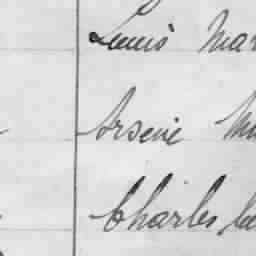 Louis Mar
Arsene Ma
Charles